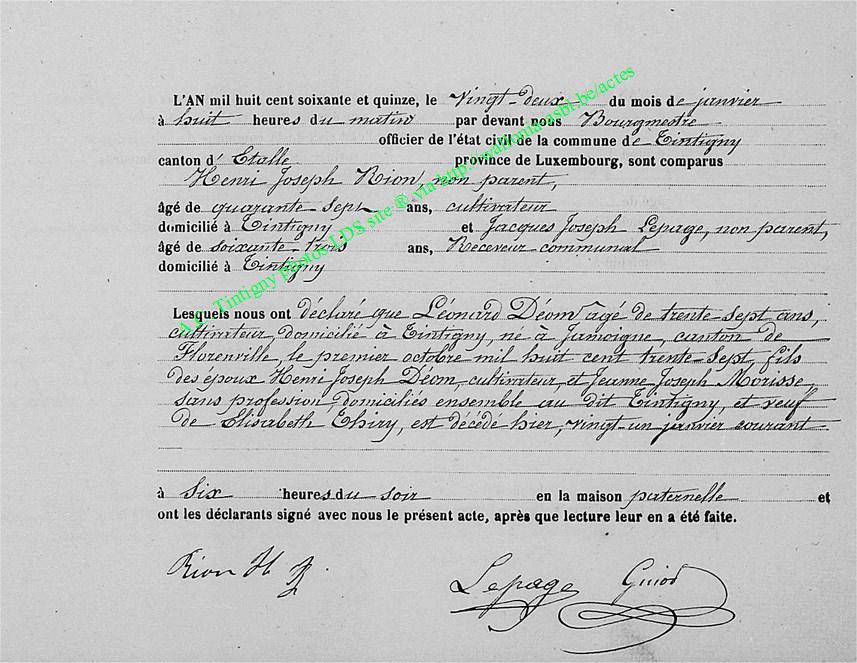 L'AN mil huit cent soixante et quinze, le Vingt-deux du mois de janvier
à huit heures du matin par devant nous Bourgmestre
officier de l'état civil de la commune de Tintigny
canton d' Etalle province de Luxembourg, sont comparus
Henri Joseph Rion, non parent,
âgé de quarante-sept ans, cultivateur
domicilié à Tintigny et Jacques Joseph Lepage, non parent,
âgé de soixante-trois ans, Receveur communal
domicilié à Tintigny
Lesquels nous ont déclaré que Léonard Déom âgé de trente-sept ans,
cultivateur, domicilié à Tintigny, né à Jamoigne, canton de
Florenville, le premier octobre mil huit cent trente-sept, fils
des époux Henri Joseph Déom, cultivateur, et Jeanne Joseph Morisse,
sans profession, domiciliés ensemble au dit Tintigny, et veuf
de Elisabeth Thiry, est décédé hier, vingt-un janvier courant
à Six heures du soir en la maison paternelle et
ont les déclarants signé avec nous le présent acte, après que lecture leur en a été faite.
Rion H J.
Lepage
Tintigny photos LDS site ® via http://www.asbl.be/actes